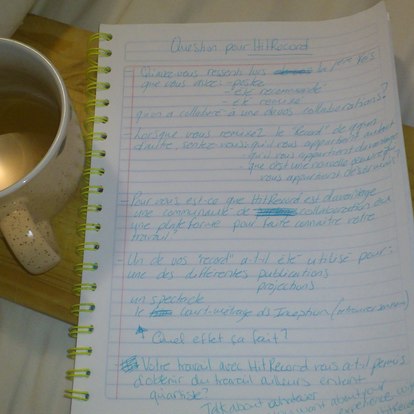 Question pour HitRecord
- Qu'avez-vous ressenti lors la 1ère fois
que vous avez - postée
- été recommandé
- été remixé
qu'on a collaboré à une de vos collaborations?
- Lorsque vous remixez le "Record" de qqun
d'autre, sentez-vous qu'il vous appartient d'autant
qu'il vous appartient davantage
que c'est une nouvelle œuvre qui
vous appartient désormais?
- Pour vous est-ce que HitRecord est davantage
une communauté de collaboration ou
une plateforme pour faire connaître votre
travail
- Un de vos "record" a t-il été utilisé pour
une des différentes publications
projections.
un spectacle
le court-métrage ds Inception (retrouver le nom)
Quel effet ça fait?
Votre travail avec HitRecord vous a t-il permis
d'obtenir du travail ailleurs en tant
qu'artiste?
Talk about
about your